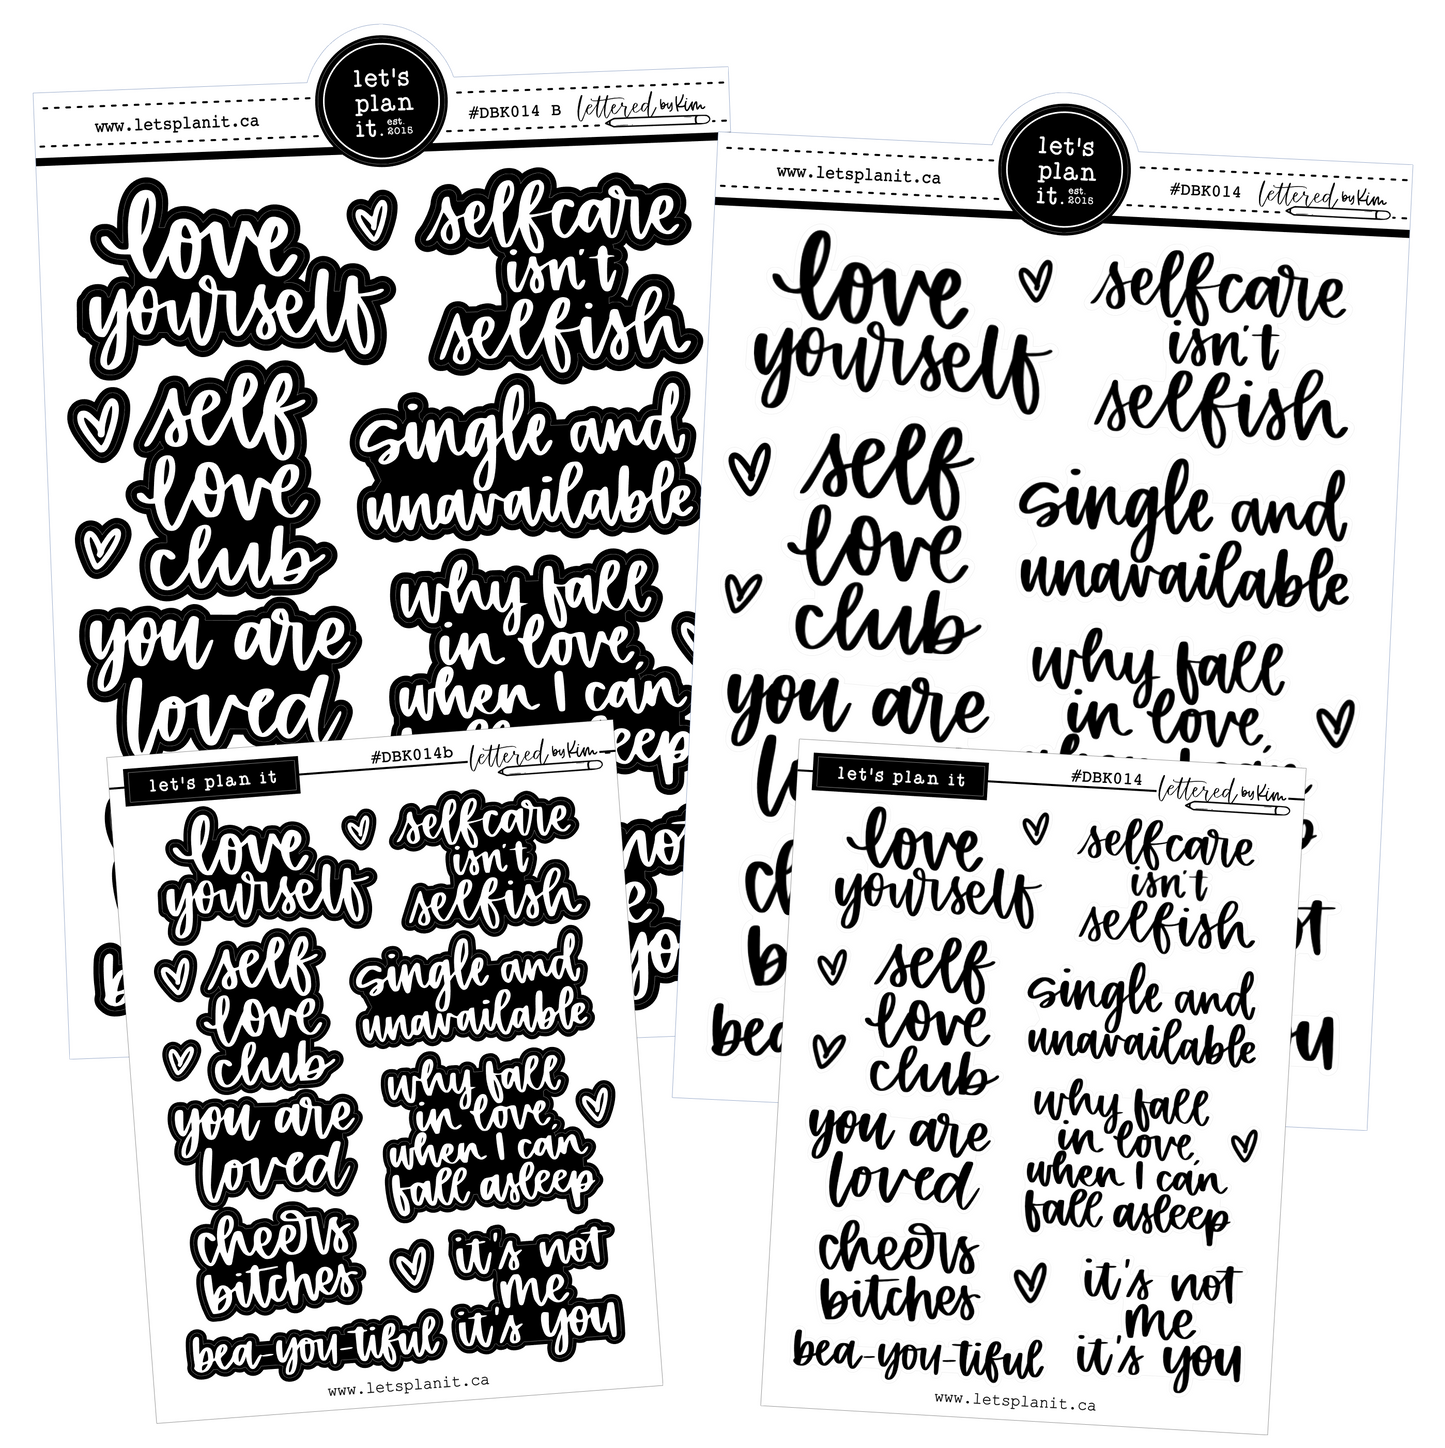 let's
plan
it. est.
2015
www.letsplanit.ca
#DBK014 B
lettered by Kim
love
yourself
selfcare
isn't
selfish
self
love
club
single and
unavailable
you are
loved
why fall
in love,
when I can
eep
not
e
yo
b
let's
plan
it. est.
2015
www.letsplanit.ca
#DBK014
lettered by Kim
love
yourself
selfcare
isn't
selfish
self
love
club
single and
unavailable
you are
l
why fall
in love,
ch
b
bea
t
u
let's plan it
#DBK014b
lettered by Kim
love
yourself
selfcare
isn't
selfish
self
love
club
single and
unavailable
you are
loved
why fall
in love,
when I can
fall asleep
cheers
bitches
it's not
me
it's you
bea-you-tiful
www.letsplanit.ca
let's plan it
#DBK014
lettered by Kim
love
yourself
selfcare
isn't
selfish
self
love
club
single and
unavailable
you are
loved
why fall
in love,
when I can
fall asleep
cheers
bitches
it's not
me
it's you
bea-you-tiful
www.letsplanit.ca